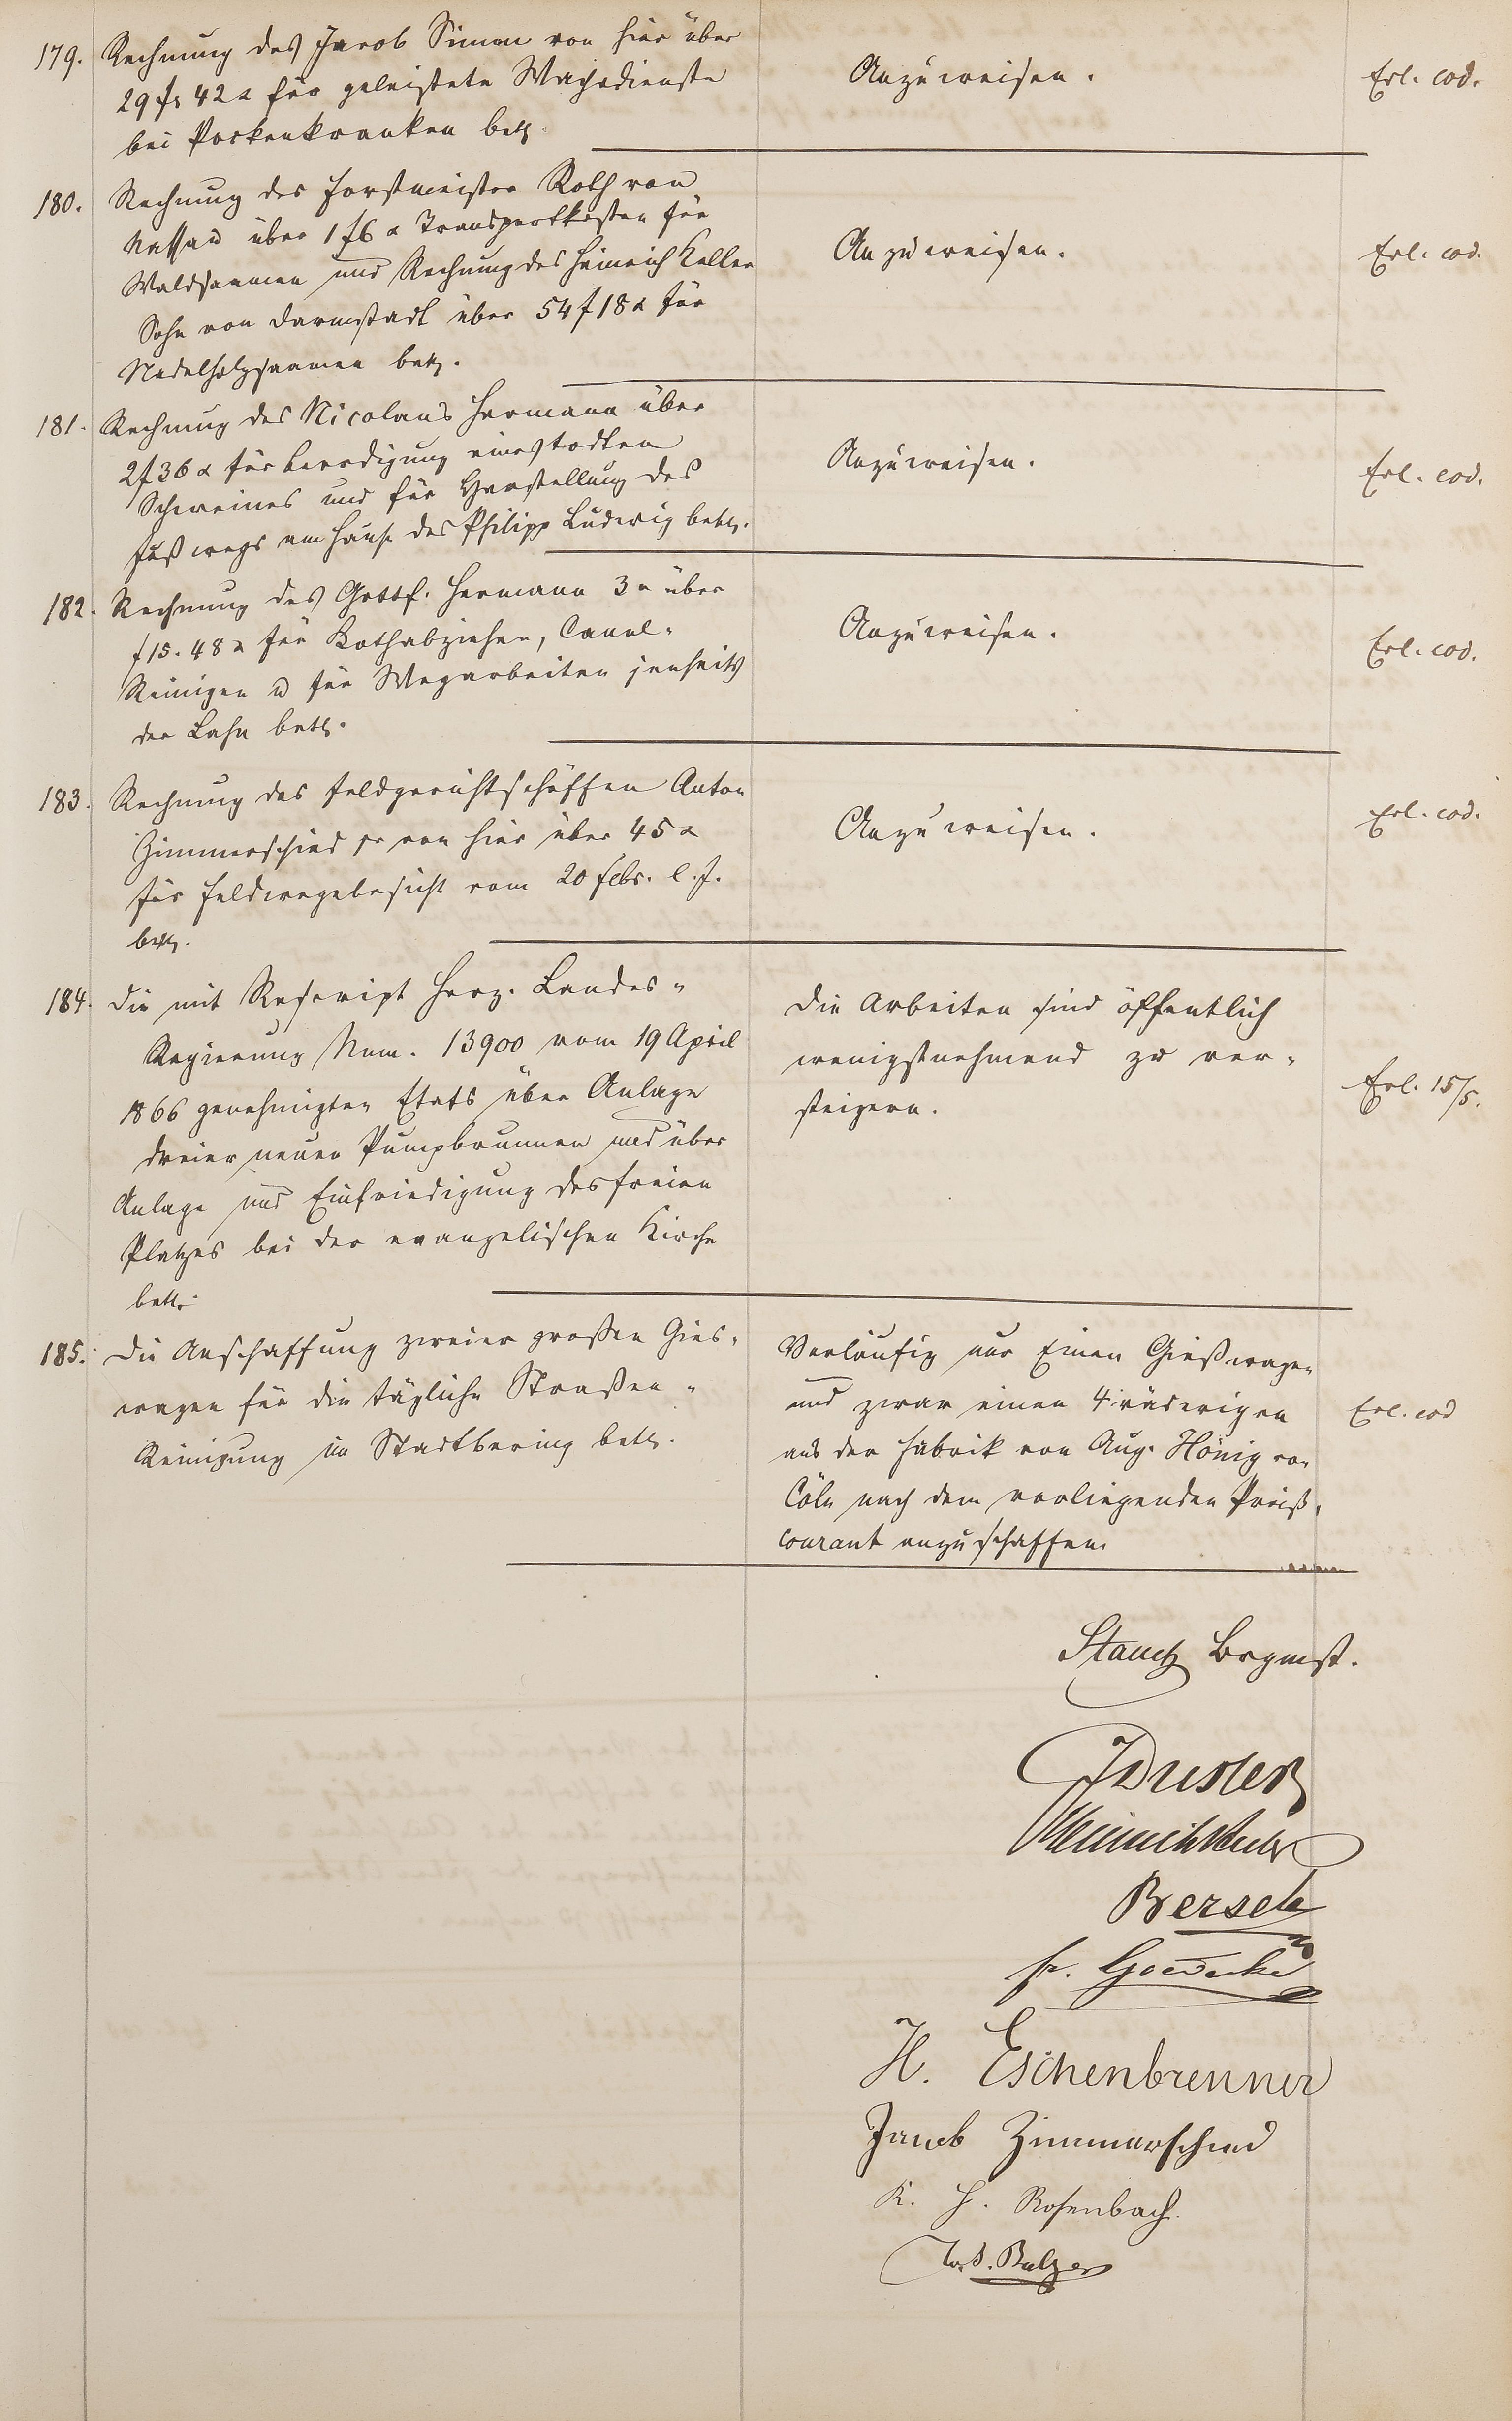 179. Rechnung des Jacob Simon von hier über
29 fr 42 x für geleistete Wachsdienste
bei Pockenkranken betr.
Anzuweisen.
Erl. eod.
180. Rechnung des Forstmeister Roth von
Nassau über 1 f 6 x Transportkosten für
Waldsaamen und Rechnung des Heinrich Keller
Sohn von Darmstadt über 54 f 18 x für
Nadelholzsaamen betr.
Anzuweisen.
Erl. eod.
181. Rechnung des Nicolaus Hermann über
2 f 36 x für Beerdigung eines todten
Schweines und für Herstellung des
Fußwegs am Hause des Philipp Ludwig betr.
Anzuweisen.
Erl. eod.
182. Rechnung des Gottf. Hermann 3r über
f 15. 48 x für Kothabziehen, Canal-
Reinigen u für Wegarbeiten jenseits
der Lahn betr.
Anzuweisen.
Erl. eod.
183. Rechnung des Feldgerichtschöffen Anton
Zimmerschied sr von hier über 45 x
für Feldwegebesicht vom 20 Febr. l. J.
betr.
Anzuweisen.
Erl. eod.
184. Die mit Rescript Herz. Landes-
Regierung Num. 13900 vom 19 April
1866 genehmigten Etats über Anlage
dreier neuer Pumpbrunnen und über
Anlage und Einfriedigung des freien
Platzes bei der evangelischen Kirche
betr.
Die Arbeiten sind öffentlich
wenigstnehmend zu ver-
steigern.
Erl. 15/5.
185. Die Anschaffung zweier großen Gies-
wagen für die tägliche Straßen-
Reinigung im Stadtbering betr.
Vorläufig nur Einen Gießwagen
und zwar einen 4 räderigen
aus der Fabrik von Aug. Hönig von
Cöln nach dem vorliegenden Preiß-
courant anzuschaffen.
Erl. eod
Brgmst.
H. Eschenbrenner
Jacob Zimmerschied
K. H. Rosenbach.
Balzer